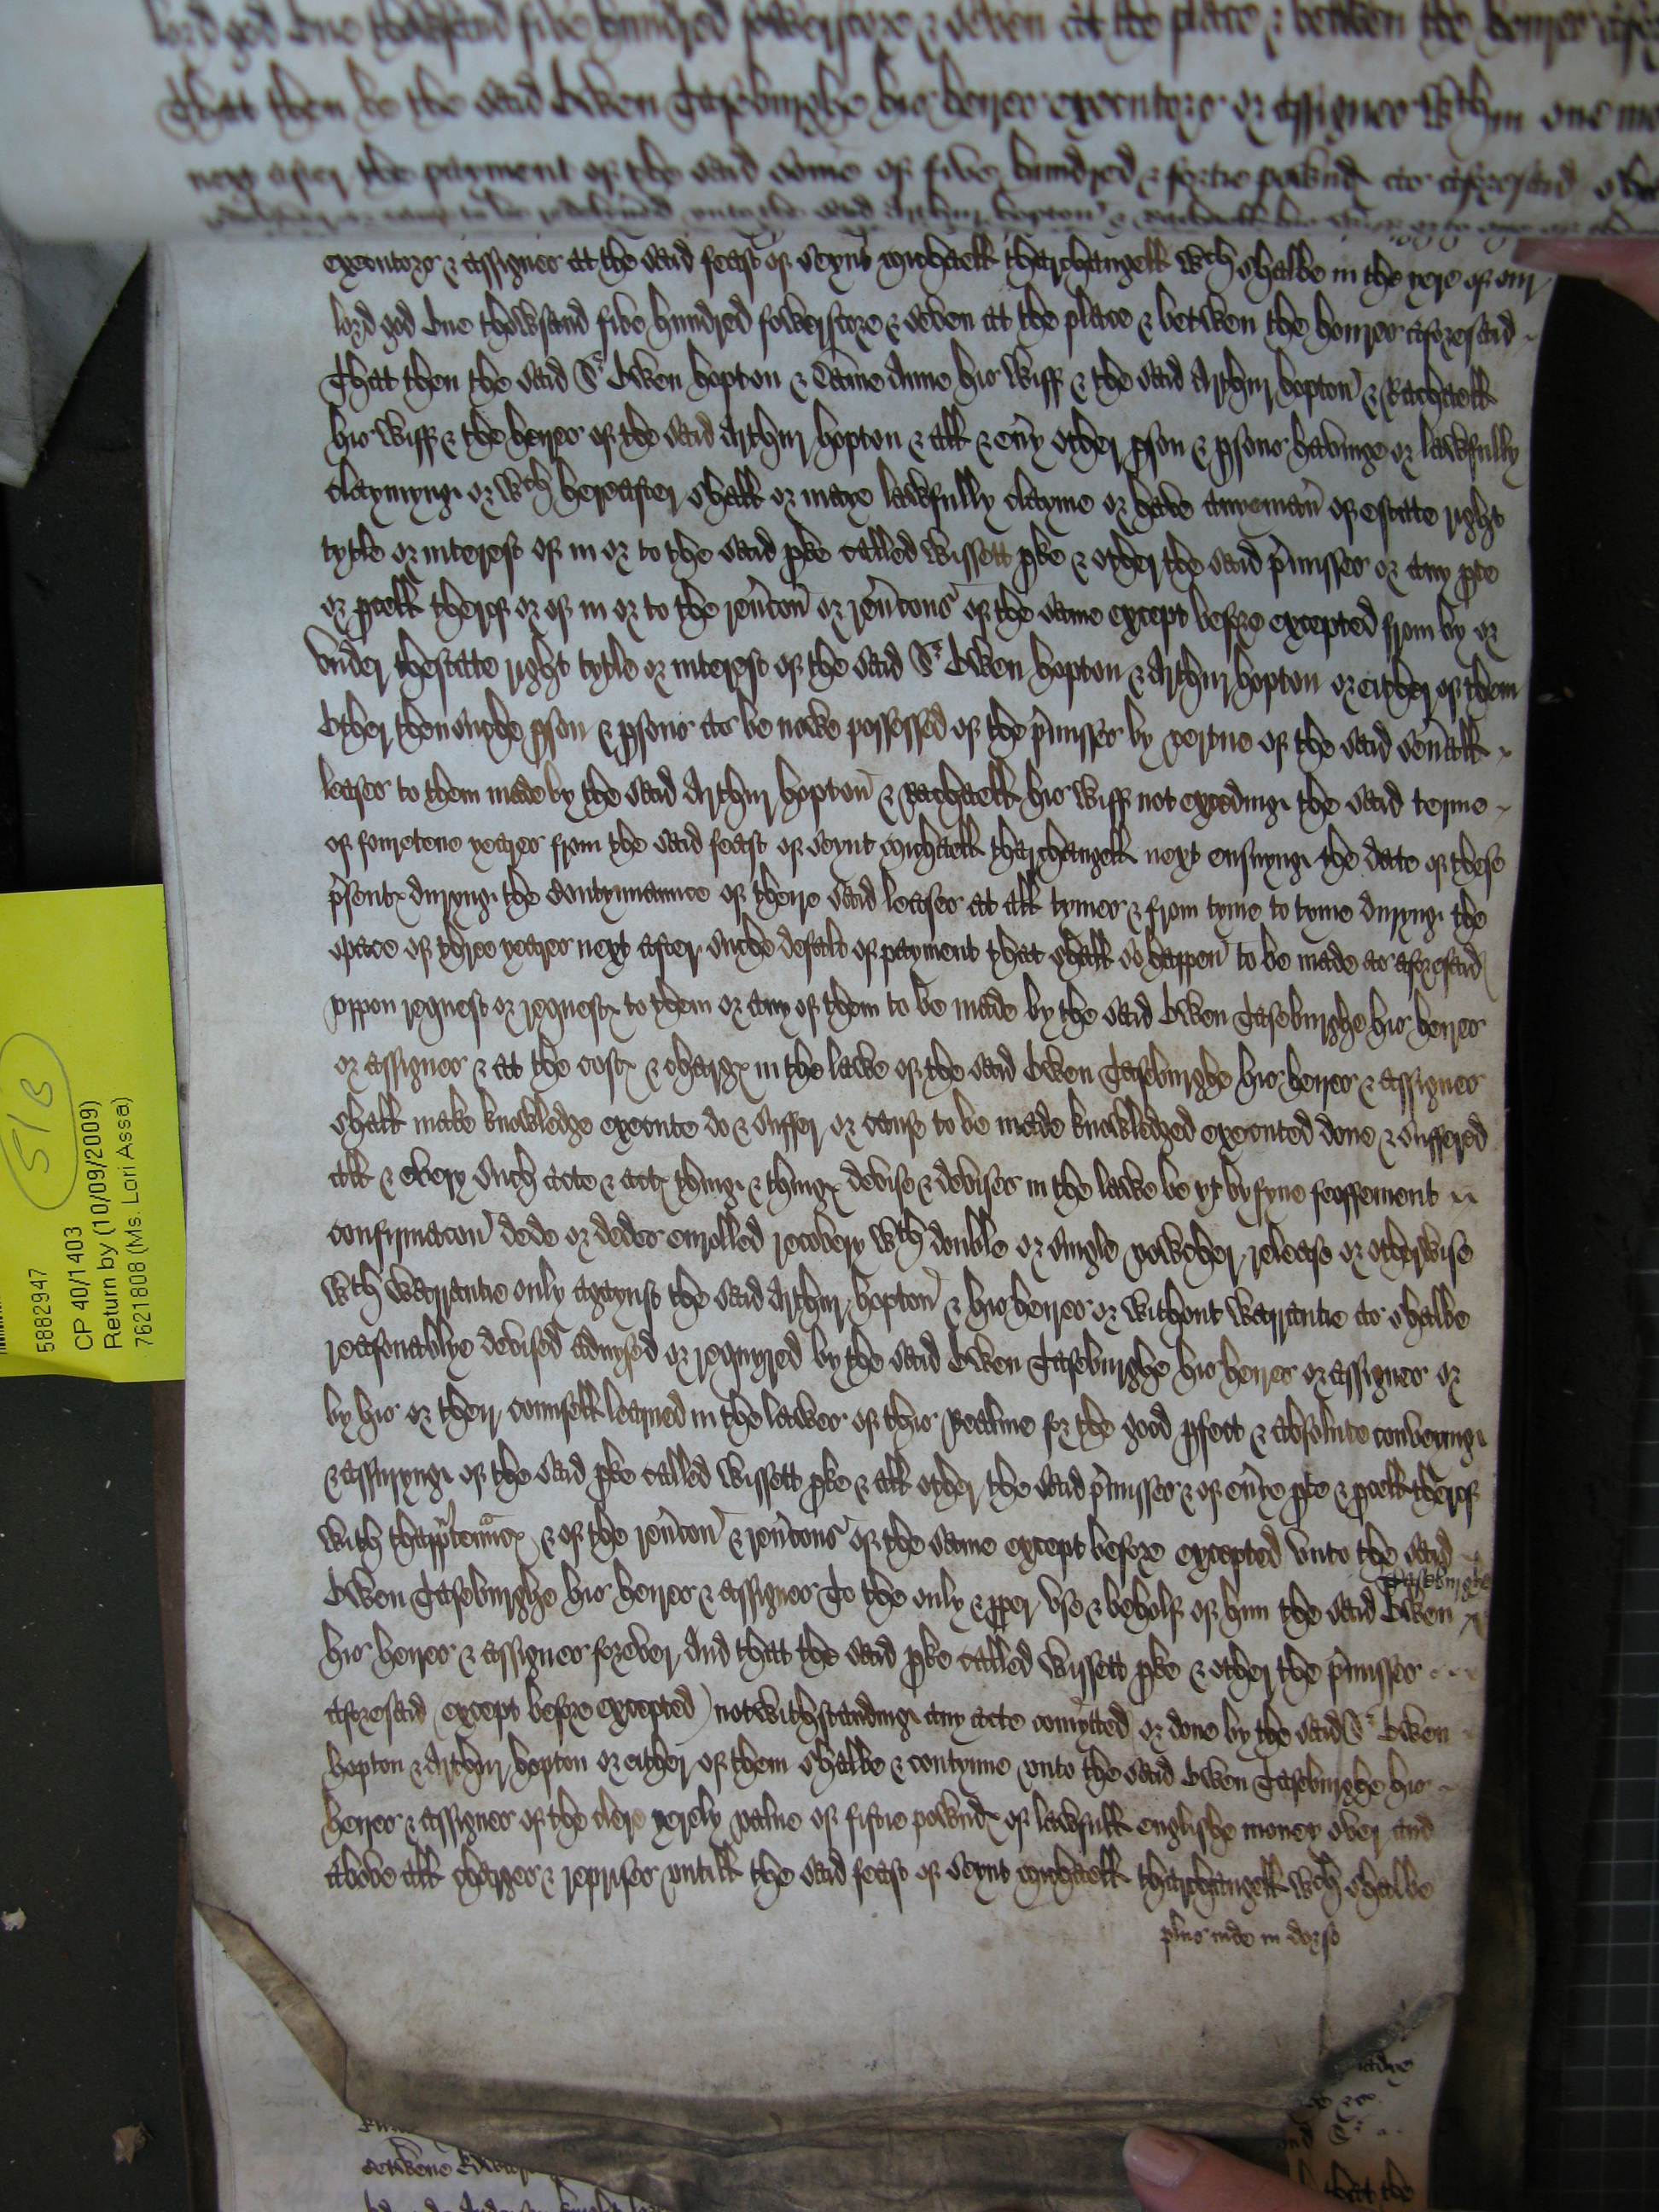 lord god One thowsand five hundred fowerscore & seven at the place & betwen the howres
Thatt then he the said Owen Taseburghe his heires executors or assignes wthin one
next after the payment of the said some of five hundred & fortie pownd as aforesaid
unto the said Arthur hopton &
executors & assignes at the said feast of Seynt Michaell tharchangell wch shalbe in the yere of our
lord god One thowsand five hundred fowerscore & seven at the place & betwen the howres aforesaid
Thatt then the said Sr Owen hopton & Dame Anne his wiff & the said Arthur hopton & Rachaell
his wiff & the heires of the said Arthur hopton & all & eny other pson & psons havinge or lawfully
claymyng or wch hereafter shall or maye lawfully clayme or have anye man of estate right
tytle or interest of in or to the said pke called Wissett pke & other the said pmisses or any pte
or pcell therof or of in or to the revcon or revcons of the same except before excepted from by or
vnder thestate right tytle or interest of the said Sr Owen hopton & Arthur hopton or either of them
Other then suche pson & psons as be nowe possessed of the pmisses by vertue of the said sevall
leases to them made by the said Arthur hopton & Rachaell his wiff not excedinge the said terme
of fouretene yeares from the said feast of Seynt Michaell tharchangell next ensuynge the date of these
psents duryng the contynuaunce of theire said leases at all tymes & from tyme to tyme duryng the
space of three yeares next after suche default of payment that shall so happen to be made as aforesaid
vppon request or requests to them or any of them to be made by the said Owen Taseburghe his heires
or assignes & at the costs & charges in the lawe of the said Owen Taseburghe his heires & assignes
shall make knowledge execute do & suffer or cause to be made knowledged executed done & suffered
all & every such acte & acts thinge & things devise & devises in the lawe be yt by fyne feoffement
confirmacon dede or dedes enrolled recovery wth double or single vowcher release or otherwise
wth warrantie only agaynst the said Arthur hopton & his heires or without warrantie as shalbe
reasonablye devised advysed or requyred by the said Owen Taseburghe his heires or assignes or
by his or their counsell learned in the lawes of this Realme for the good pfect & absolute conveinge
& assuryng of the said pke called Wissett pke & all other the said pmisses & of evye pte & pcell therof
with thapptenncs & of the revcon & revcons of the same except before excepted vnto the said
Taseburghe
Owen Taseburghe his heires & assignes To the only & pper vse & behofe of him the said Owen
his heires & assignes forever And thatt the said pke called Wissett pke & other the pmisses
aforesaid (except before excepted) notwithstandinge any acte comytted or done by the said Sr Owen
hopton & Arthur hopton or either of them shalbe & contynue vnto the said Owen Taseburghe his
heires & assignes of the clere yerely value of fiftie pownds of lawfull englishe money over and
above all charges & reprises vntill the said feast of Seynt Michaell tharchangell wch shalbe
plus inde in dorso
5/8
5882947
CP 40/1403
Return by (10/09/2009)
7621808 (Ms. Lori Assa)
that the